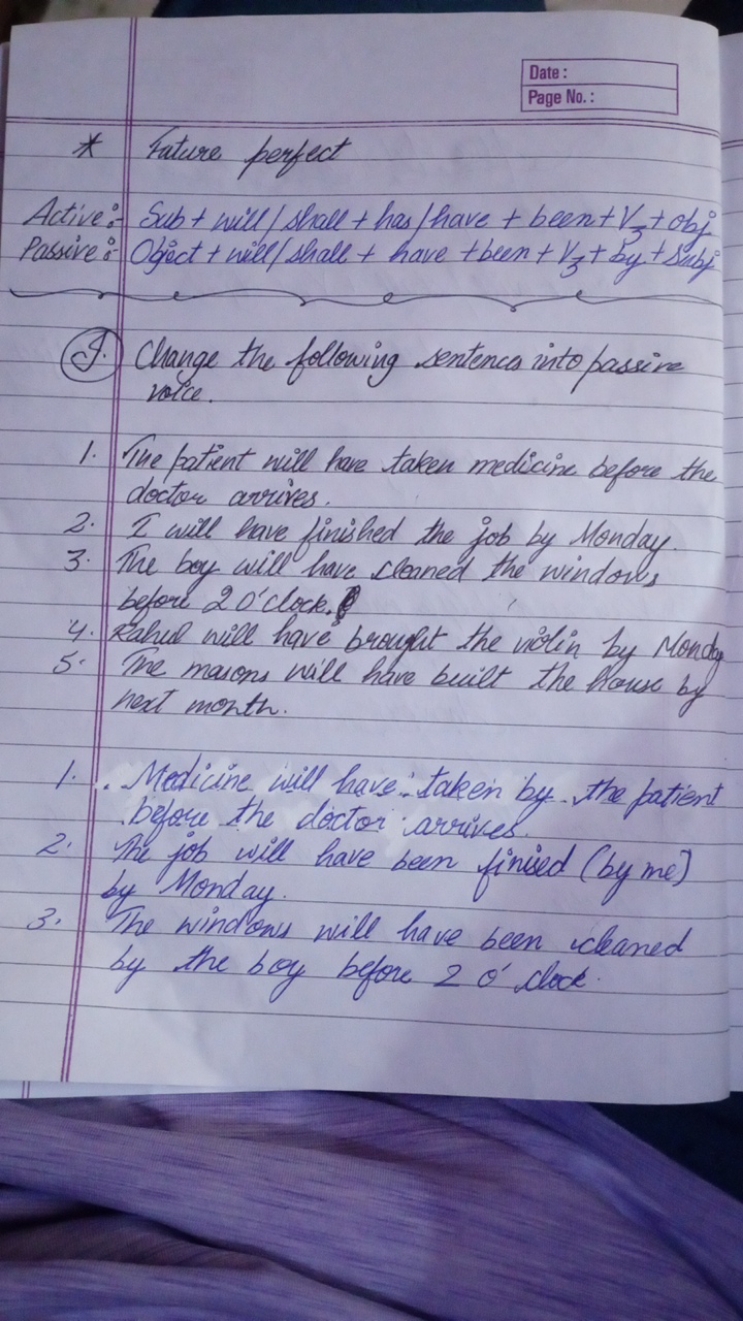 Date :
Page No. :
* Future perfect
Active :- Sub + will / shall + has / have + been + V3 + obj
Passive :- Object + will / shall + have + been + V3 + by + Subj
I. Change the following sentences into passive
voice.
1. The patient will have taken medicine before the
doctor arrives.
2. I will have finished the job by Monday.
3. The boy will have cleaned the windows
before 2 O'clock.
4. Rahul will have brought the violin by Monday
5. The masons will have built the house by
next month.
1. Medicine will have taken by the patient
before the doctor arrives.
2. The job will have been finised (by me)
by Monday.
3. The windows will have been cleaned
by the boy before 2 o' clock.